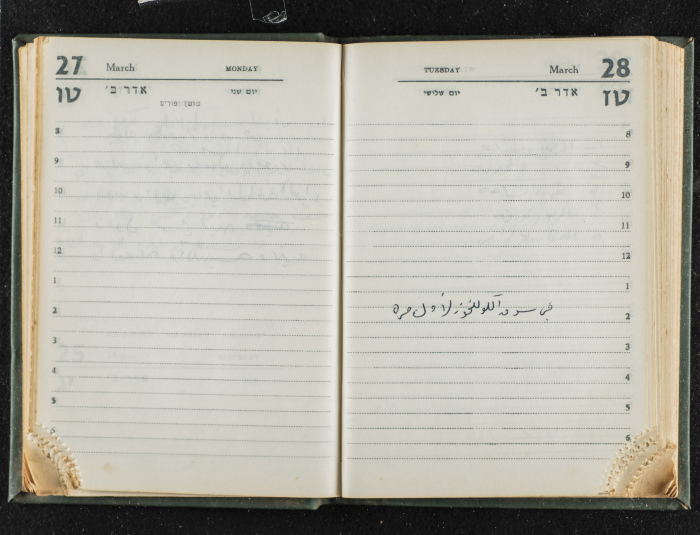 27 March MONDAY
טו אדר ב׳ יום שני
שושן פורים
8
9
10
11
12
1
2
3
4
5
TUESDAY March 28
יום שלישי אדר ב׳ טז
8
9
10
11
12
1
في سوق لأول مرة
2
3
4
5
6